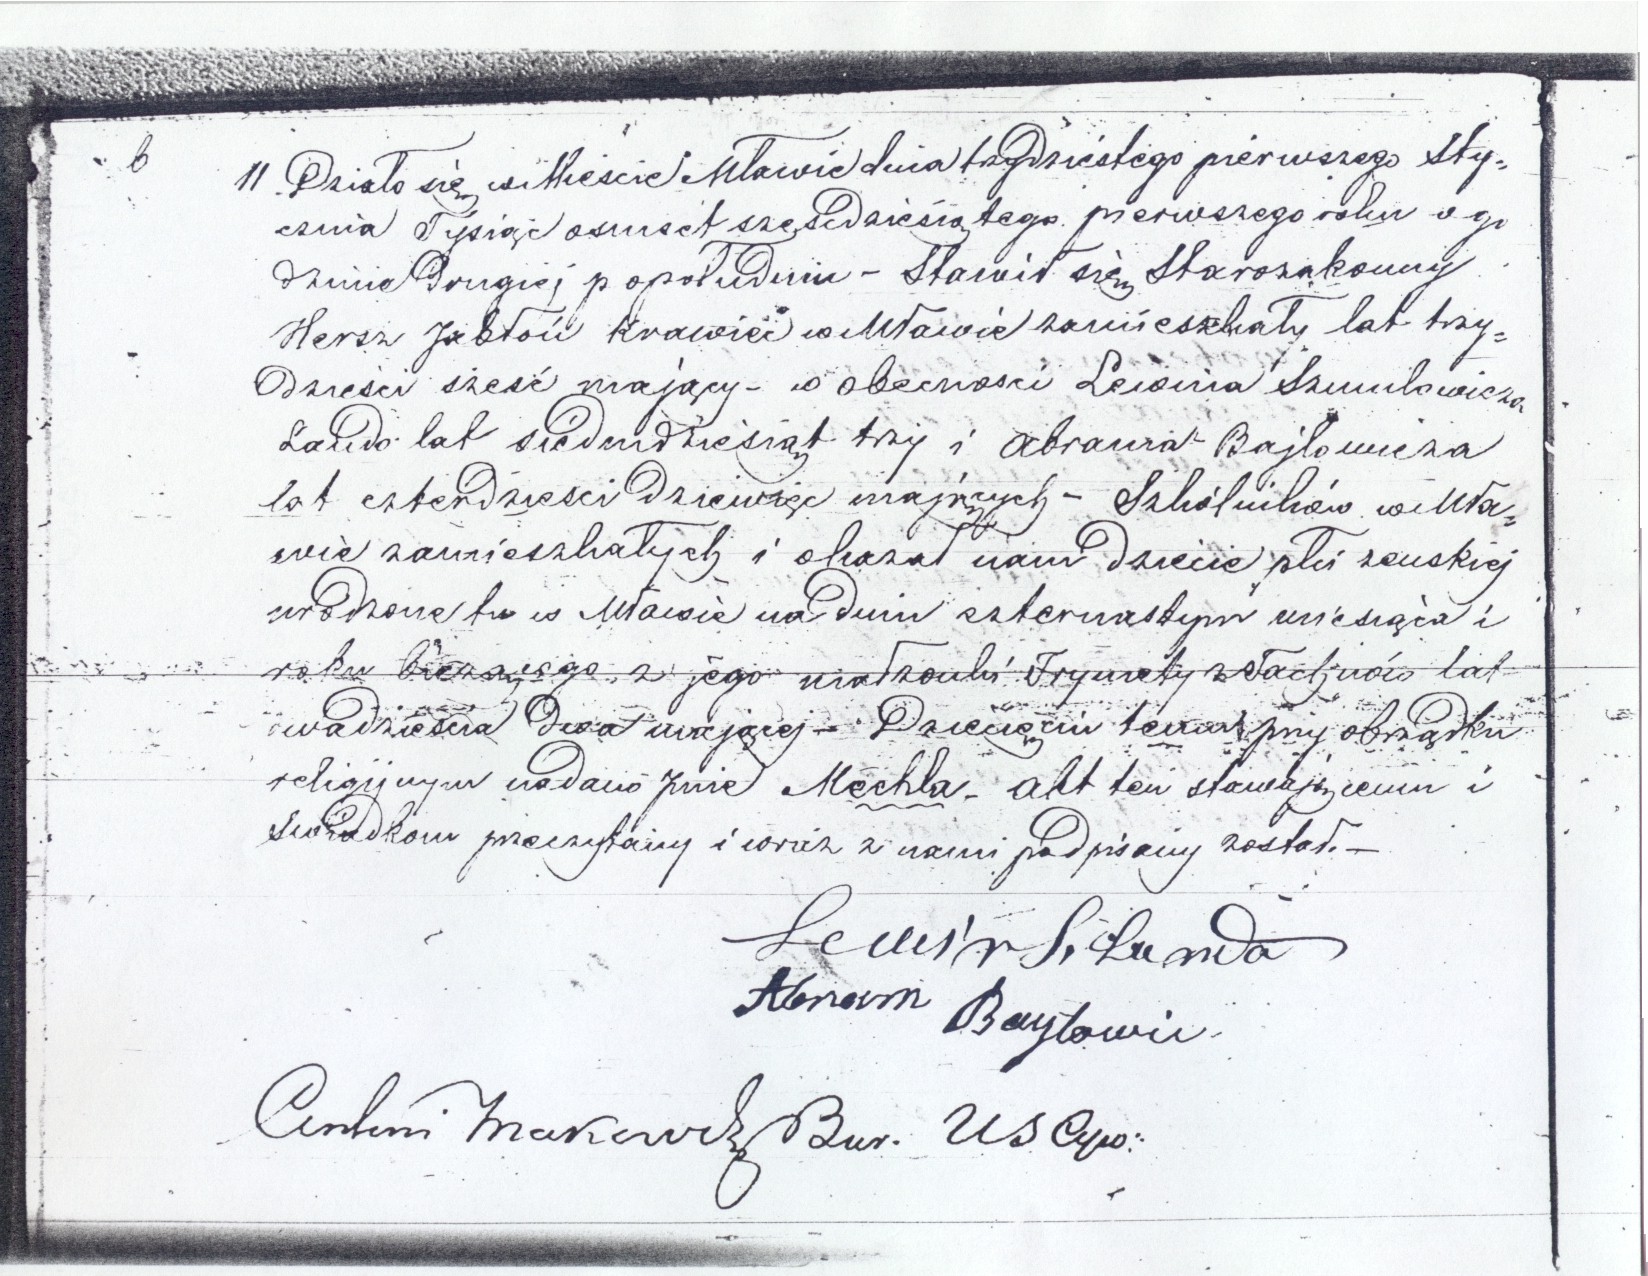 6
11 Działo się w Mieście Mławie dnia trzydziestego pierwszego Sty=
cznia Tysiąc osmset sześćdziesiątego pierwszego roku o go
dzinie drugiej popołudniu – Stawił się Starozakonny
Hersz Jabłoń krawiec w Mławie zamieszkały lat trzy=
dzieści sześć mający – w obecności Lewina Szmulowicza
Lando lat siedmdziesiąt trzy i Abrama Bajlowicza
lat czterdzieści dziewięć mających – Szkólników w Mła=
wie zamieszkałych i okazał nam dziecie płci zenskiej
urodzone tu w Mławie na dniu czternastym miesiąca i
roku bieżącego z jego małżonki Frymety z lat
dwadzieścia dwa mającej – Dziecięciu temu przy obrządku
religijnym nadano Jmie Mechla – Akt ten stawającemu i
Świadkom przeczytany i wraz z nami podpisany został. –
Lewin S. Landa
Abram Baylowic
Antoni Bur. U S Cyw: